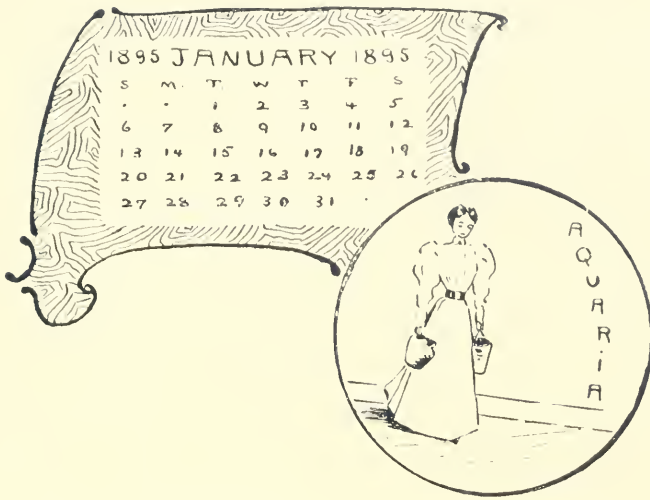 1895 JANUARY 1895
S M. T. W T F S
· · 1 2 3 4 5
6 7 8 9 10 11 12
13 14 15 16 17 18 19
20 21 22 23 24 25 26
27 28 29 30 31 ·
AQUARIA